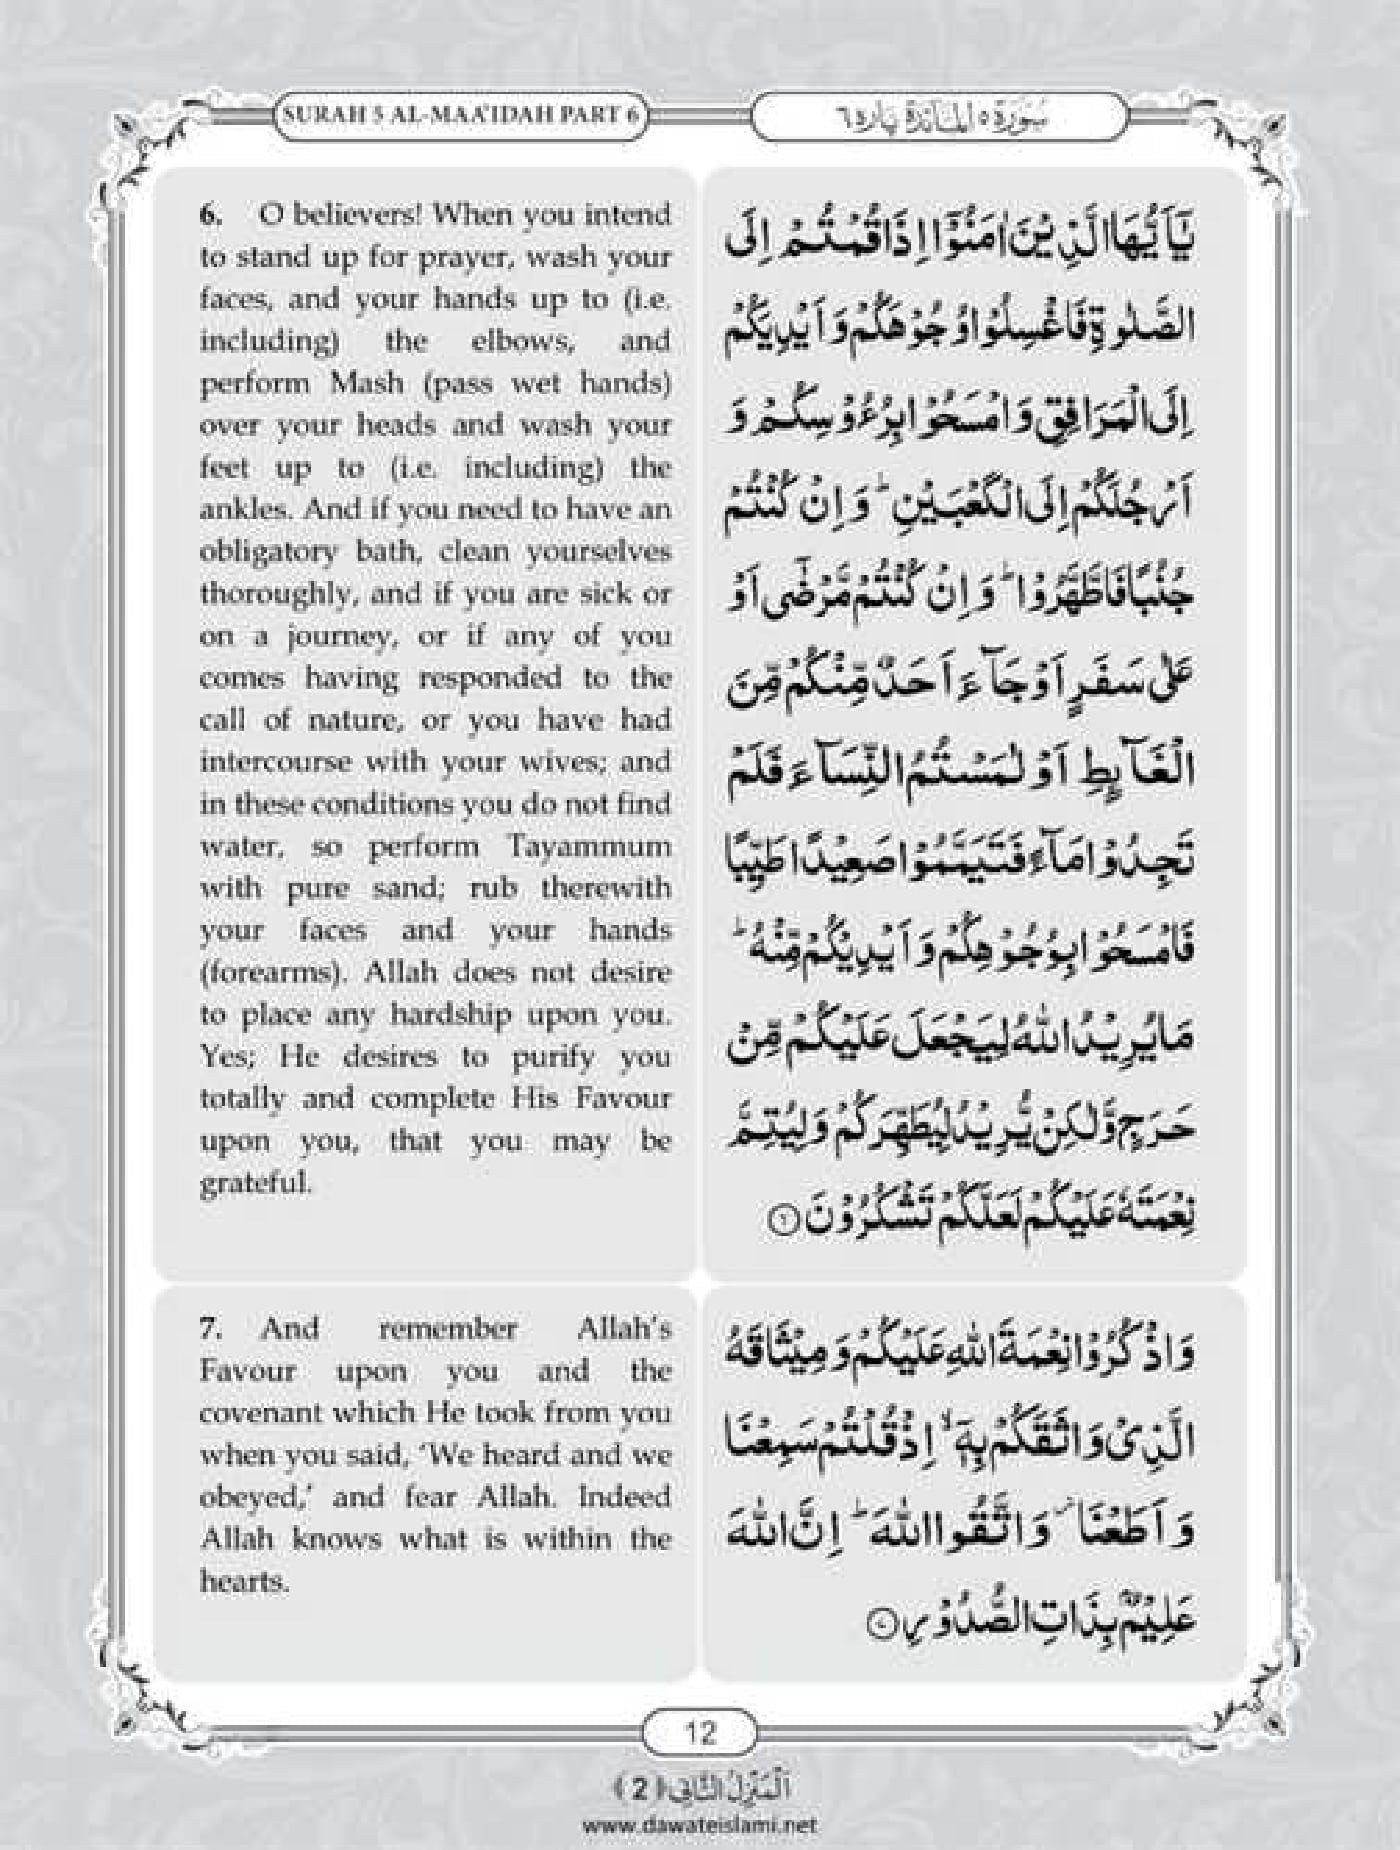 SURAH 5 AL-MAA'IDAH PART 6
سُوْرَةُ ٥ اَلْمَآئِدَة پاره ٦
6. O believers! When you intend
to stand up for prayer, wash your
faces, and your hands up to (i.e.
including) the elbows, and
perform Mash (pass wet hands)
over your heads and wash your
feet up to (i.e. including) the
ankles. And if you need to have an
obligatory bath, clean yourselves
thoroughly, and if you are sick or
on a journey, or if any of you
comes having responded to the
call of nature, or you have had
intercourse with your wives; and
in these conditions you do not find
water, so perform Tayammum
with pure sand; rub therewith
your faces and your hands
(forearms). Allah does not desire
to place any hardship upon you.
Yes; He desires to purify you
totally and complete His Favour
upon you, that you may be
grateful.
يٰۤاَيُّهَا الَّذِيْنَ اٰمَنُوْۤا اِذَا قُمْتُمْ اِلَى
الصَّلٰوةِ فَاغْسِلُوْا وُجُوْهَكُمْ وَ اَيْدِيَكُمْ
اِلَى الْمَرَافِقِ وَ امْسَحُوْا بِرُءُوْسِكُمْ وَ
اَرْجُلَكُمْ اِلَى الْكَعْبَيْنِؕ وَ اِنْ كُنْتُمْ
جُنُبًا فَاطَّهَّرُوْاؕ وَ اِنْ كُنْتُمْ مَّرْضٰۤى اَوْ
عَلٰى سَفَرٍ اَوْ جَآءَ اَحَدٌ مِّنْكُمْ مِّنَ
الْغَآىِٕطِ اَوْ لٰمَسْتُمُ النِّسَآءَ فَلَمْ
تَجِدُوْا مَآءً فَتَيَمَّمُوْا صَعِيْدًا طَيِّبًا
فَامْسَحُوْا بِوُجُوْهِكُمْ وَ اَيْدِيْكُمْ مِّنْهُؕ
مَا يُرِيْدُ اللّٰهُ لِيَجْعَلَ عَلَيْكُمْ مِّنْ
حَرَجٍ وَّ لٰكِنْ يُّرِيْدُ لِيُطَهِّرَكُمْ وَ لِيُتِمَّ
نِعْمَتَهٗ عَلَيْكُمْ لَعَلَّكُمْ تَشْكُرُوْنَ ﴿٦﴾
7. And remember Allah's
Favour upon you and the
covenant which He took from you
when you said, 'We heard and we
obeyed,' and fear Allah. Indeed
Allah knows what is within the
hearts.
وَ اذْكُرُوْا نِعْمَةَ اللّٰهِ عَلَيْكُمْ وَ مِيْثَاقَهُ
الَّذِيْ وَاثَقَكُمْ بِهٖۤۙ اِذْ قُلْتُمْ سَمِعْنَا
وَ اَطَعْنَا٘ وَ اتَّقُوا اللّٰهَؕ اِنَّ اللّٰهَ
عَلِيْمٌۢ بِذَاتِ الصُّدُوْرِ ﴿٧﴾
12
اَلْمَنْزِلُ الثَّانِي ﴿2﴾
www.dawateislami.net